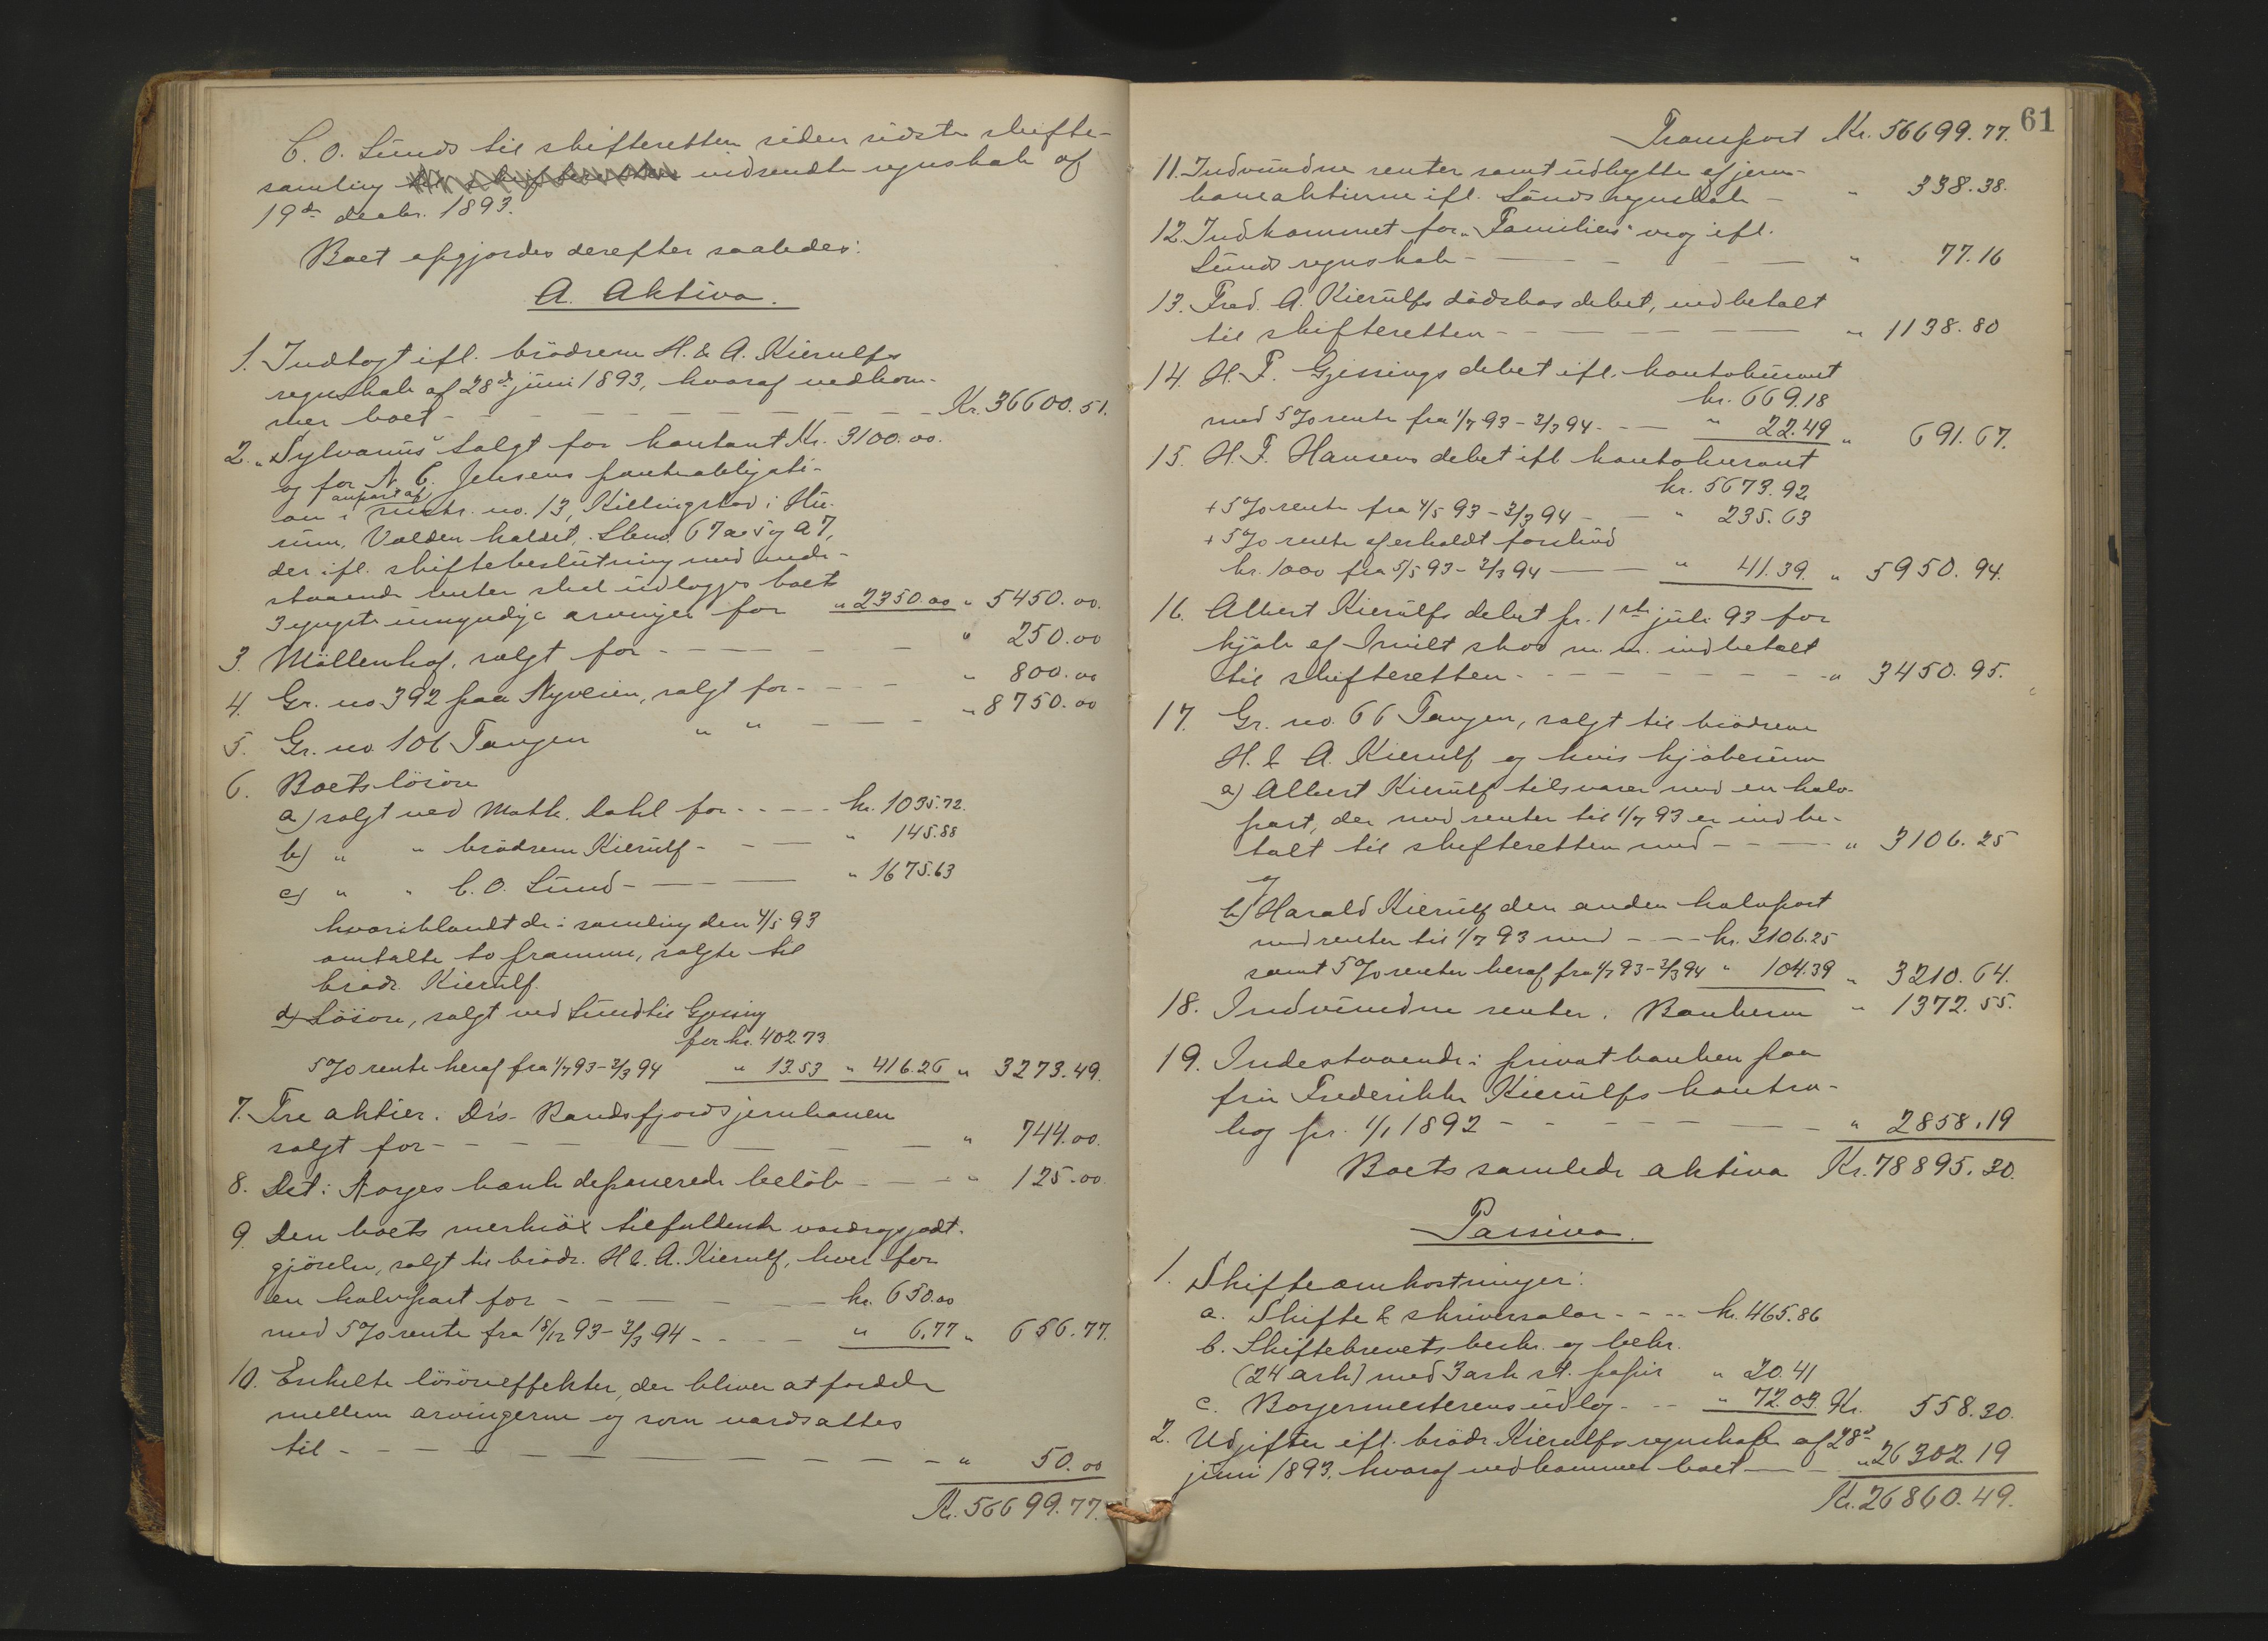 C. O. Lunds til skifteretten siden sidste skifte-
samling indsendte regnskab af
19de decbr. 1893.
Boet opgjordes derefter saaledes:
A. Aktiva.
1. Indtægt ifl. brödrene H. & A. Kierulfs
regnskab af 28de juni 1893, hvoraf vedkom-
mer boet - - - - Kr. 36600.51.
2. "Sylvanus" solgt for kontant Kr. 3100.00.
og for N. C. Jensens panteobligati-
anpart af
on i matr. no. 13, Killingstad i Hu-
rum, Valden kaldet, Lbno. 67 a 5 og a 7,
der ifl. skiftebeslutning med inde-
staaende renter skal udlægges boets
3 yngste umyndige arvinger for " 2350.00 " 5450.00.
3. Möllenhof, solgt for - - - - " 250.00
4. Gr. no 392 paa Nyveien, solgt for - - - " 800.00
5. Gr. no 106 Tangen " " - - - " 8750.00
6. Boets lösöre
a) solgt ved Math. Dahl for - - - kr. 1035.72.
b) " " brödrene Kierulf - - - " 145.88
c) " " C. O. Lund - - - " 1675.63
hvoriblandt de i samling den 4/5 93
omtalte to pramme, solgte til
brödr. Kierulf.
d) Lösöre, solgt ved Lund til Gjessing
for kr. 402.73
5% rente heraf fra 1/7 93 - 2/3 94 " 13.53 " 416.26 " 3273.49.
7. Tre aktier i Drs-Randsfjords jernbanen
solgt for - - - - " 744.00.
8. Det i Norges bank deponerede belöb - - - " 125.00.
9. Den boets merkiöx tilfaldende vandregodt-
gjörelse, solgt til brödr. H. & A. Kierulf, hver for
en halvpart for - - - - kr. 650.00
med 5% rente fra 15/12 93 - 2/3 94 - - - " 6.77 " 656.77.
10. Enkelte lösöreeffekter, der bliver at fordele
mellem arvingerne og som værdsattes
til - - - - " 50.00
Kr. 56699.77.
61
Transport Kr. 56699.77.
11. Indvundne renter samt udbytte af jern-
baneaktierne ifl. Lunds regnskab - " 338.38.
12. Indkommet for "Familiens" vrag ifl.
Lunds regnskab - - - - " 77.16
13. Fred. A. Kierulfs dödsbos debet, indbetalt
til skifteretten - - - - " 1138.80
14. H. F. Gjessings debet ifl. kontokurant
kr. 669.18
med 5% rente fra 1/7 93 - 2/3 94 - - " 22.49 " 691.67.
15. H. F. Hansens debet ifl. kontokurant
kr. 5673.92
+ 5% rente fra 4/5 93 - 2/3 94 - - " 235.63
+ 5% rente af erholdt forskud
kr. 1000 fra 5/5 93 - 2/3 94 - - " 41.39. " 5950.94.
16. Albert Kierulfs debet pr. 1ste juli 93 for
kjöb af Smilt skov m. m. indbetalt
til skifteretten - - - - " 3450.95.
17. Gr. no. 66 Tangen, solgt til brödrene
H. & A. Kierulf og hvis kjöbesum
a) Albert Kierulf tilsvarer med en halv-
part, der med renter til 1/7 93 er indbe-
talt til skifteretten med - - - " 3106.25
og
b) Harald Kierulf den anden halvpart
med renter til 1/7 93 med - - - kr. 3106.25
samt 5% renter heraf fra 1/7 93 - 2/3 94 " 104.39 " 3210.64.
18. Indvundne renter i Bankerne " 1372.55.
19. Indestaaende i privatbanken paa
fru Frederikke Kierulfs kontra-
bog pr. 1/1 1892 - - - - " 2858.19
Boets samlede aktiva Kr. 78895.30.
Passiva.
1. Skifteomkostninger:
a. Skifte & skriversalær - - - kr. 465.86
b. Skiftebrevets beskr. og bekr.
(24 ark) med 3 ark st. papir " 20.41
c. Borgermesterens udlæg - - " 72.03 Kr. 558.30.
2. Udgifter ifl. brödr. Kierulfs regnskab af 28de
juni 1893, hvoraf vedkommer boet - - " 26302.19
Kr. 26860.49.